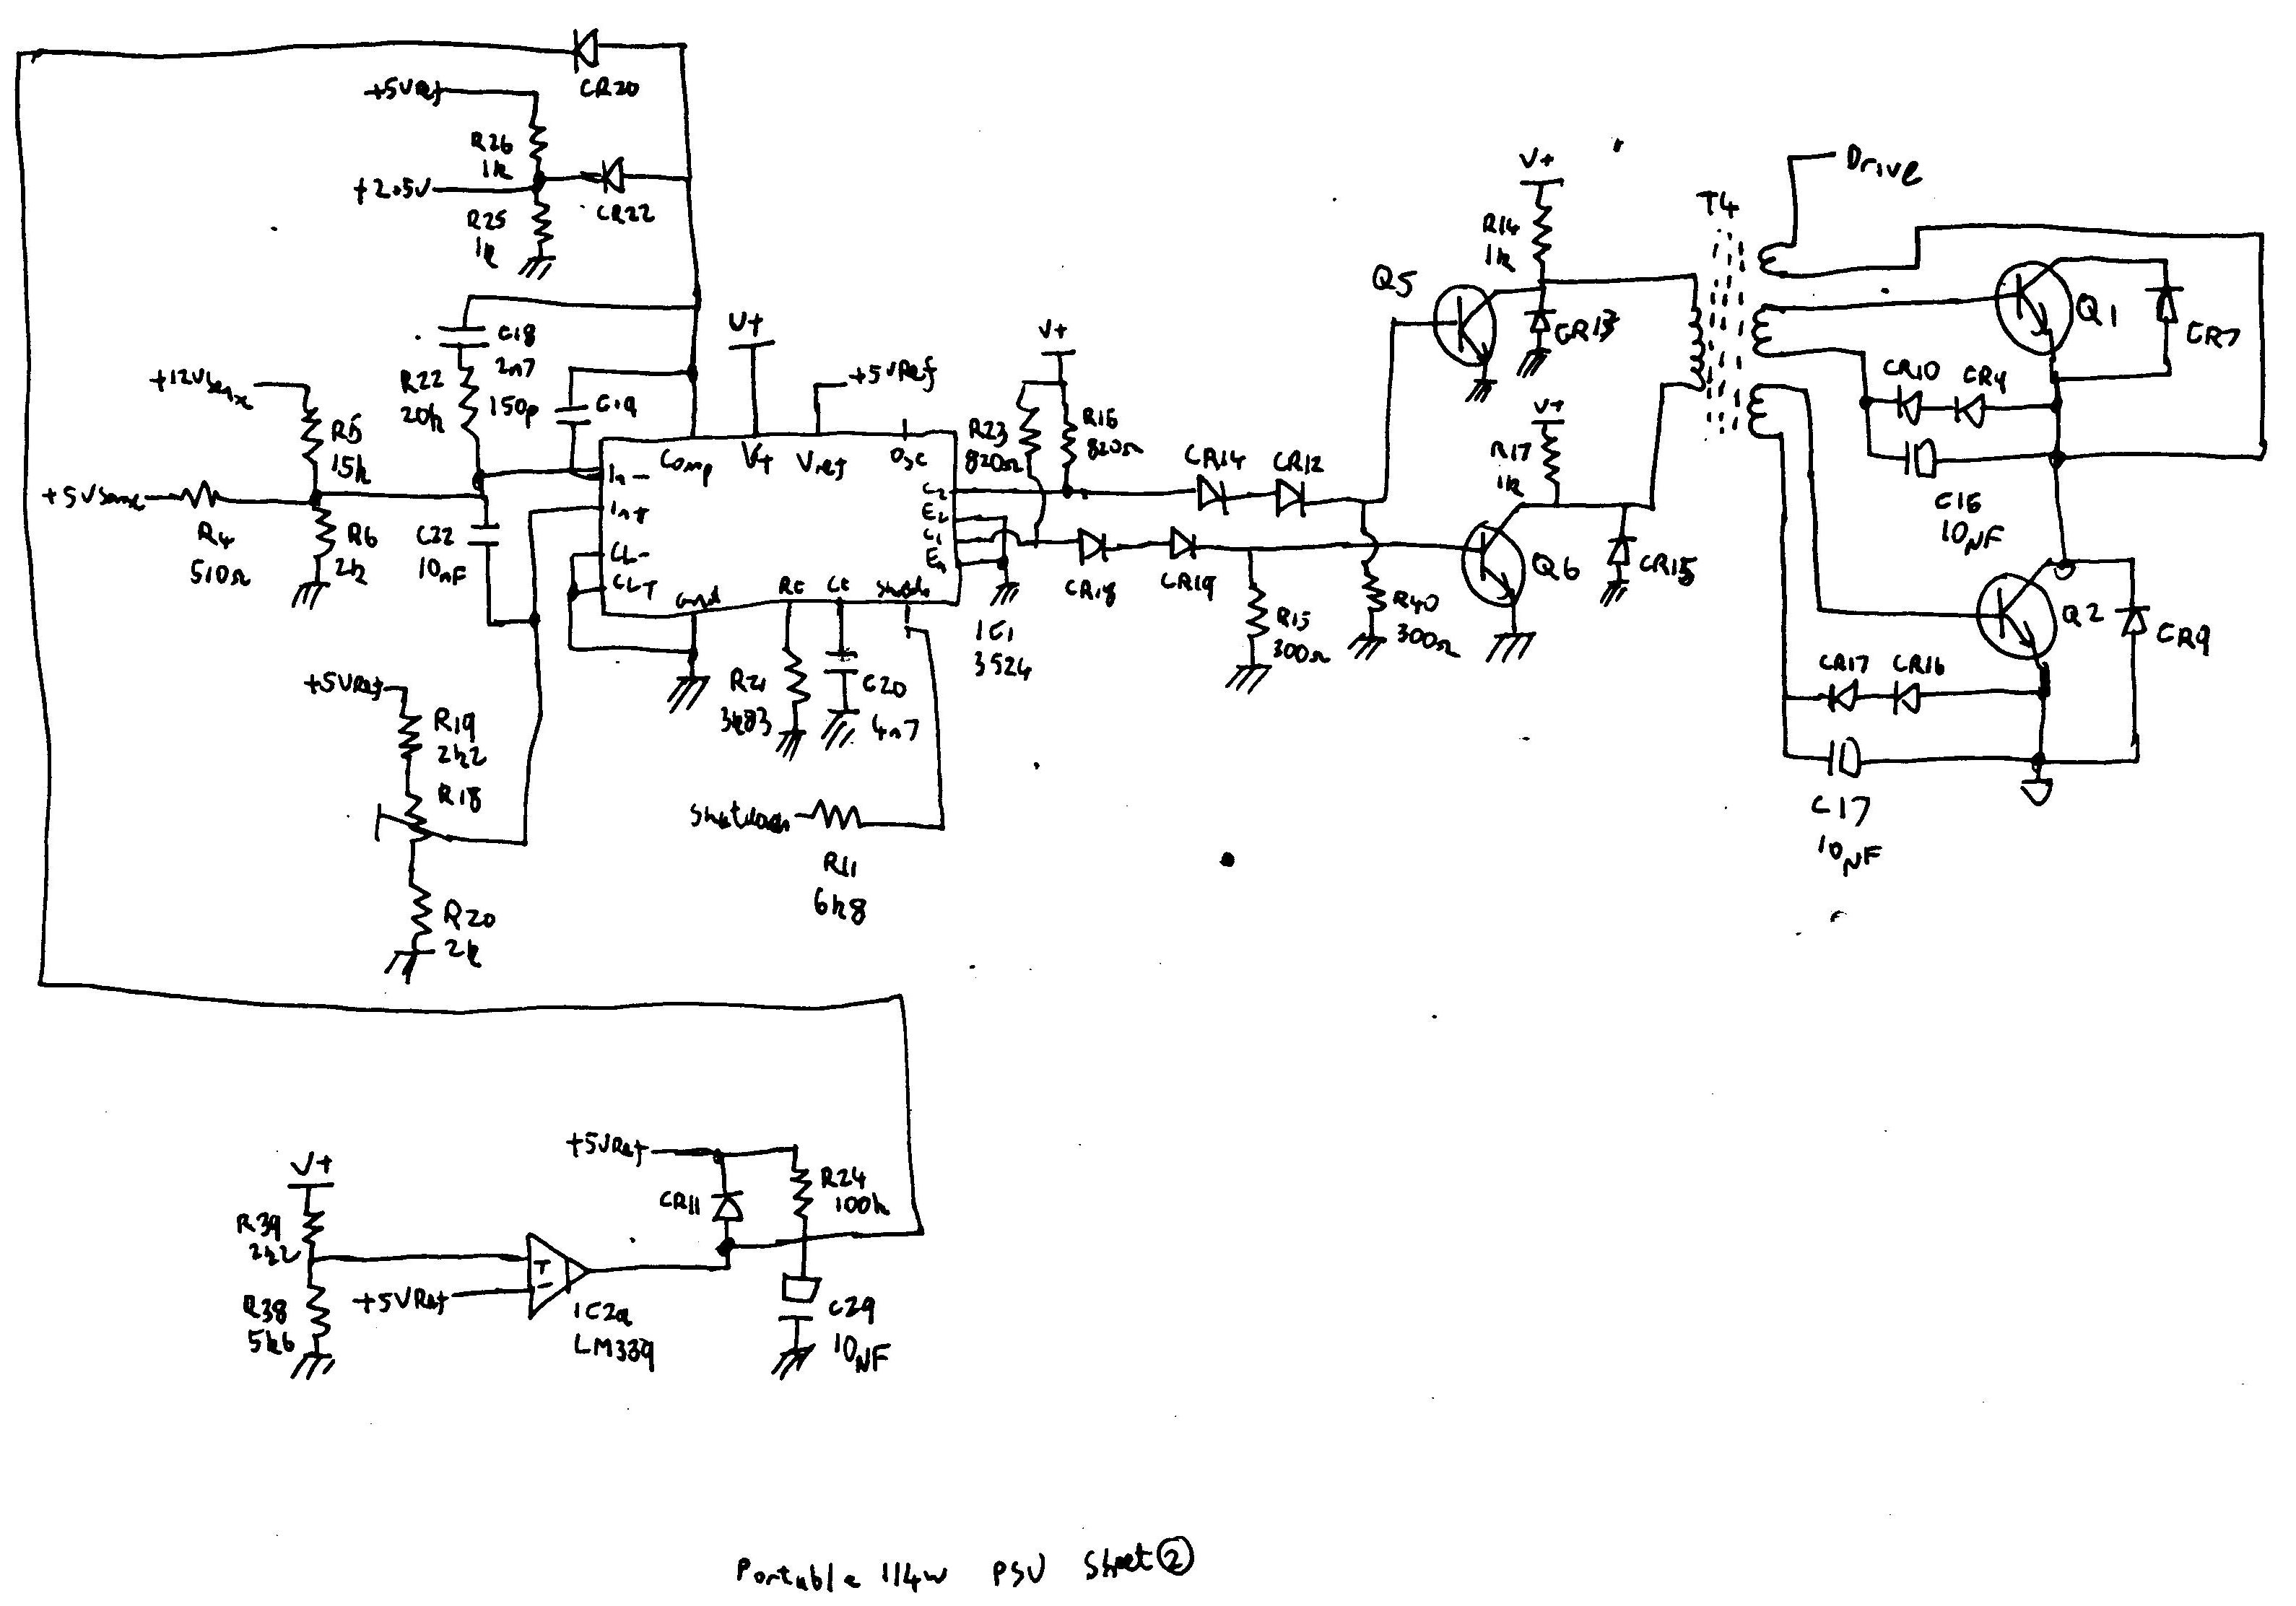 CR20
+5VRef
R26
1k
+2.5V
CR22
R25
1k
C18
2n7
R22
20k
150p
C19
+12VSense
R5
15k
+5VSense
R4
510Ω
R6
2k
C22
10nF
V+
+5VRef
Comp
V+
Vref
Osc
In-
In+
CL-
CL+
Gnd
Rt
Ct
Shutdn
C2
E2
C1
E1
IC1
3524
V+
R23
820Ω
R16
820Ω
CR14
CR12
CR18
CR19
R15
300Ω
R40
300Ω
V+
R14
1k
Q5
CR13
V+
R17
1k
Q6
CR15
T4
Drive
Q1
CR7
CR10
CR4
C16
10µF
Q2
CR9
CR17
CR16
C17
10µF
R21
3k83
C20
4n7
+5VRef
R19
2k2
R18
R20
2k
Shutdown
R11
6k8
V+
R39
2k2
R38
5k6
+5VRef
+
-
IC2a
LM339
+5VRef
CR11
R24
100k
C29
10µF
Portable 114w PSU Sheet 2